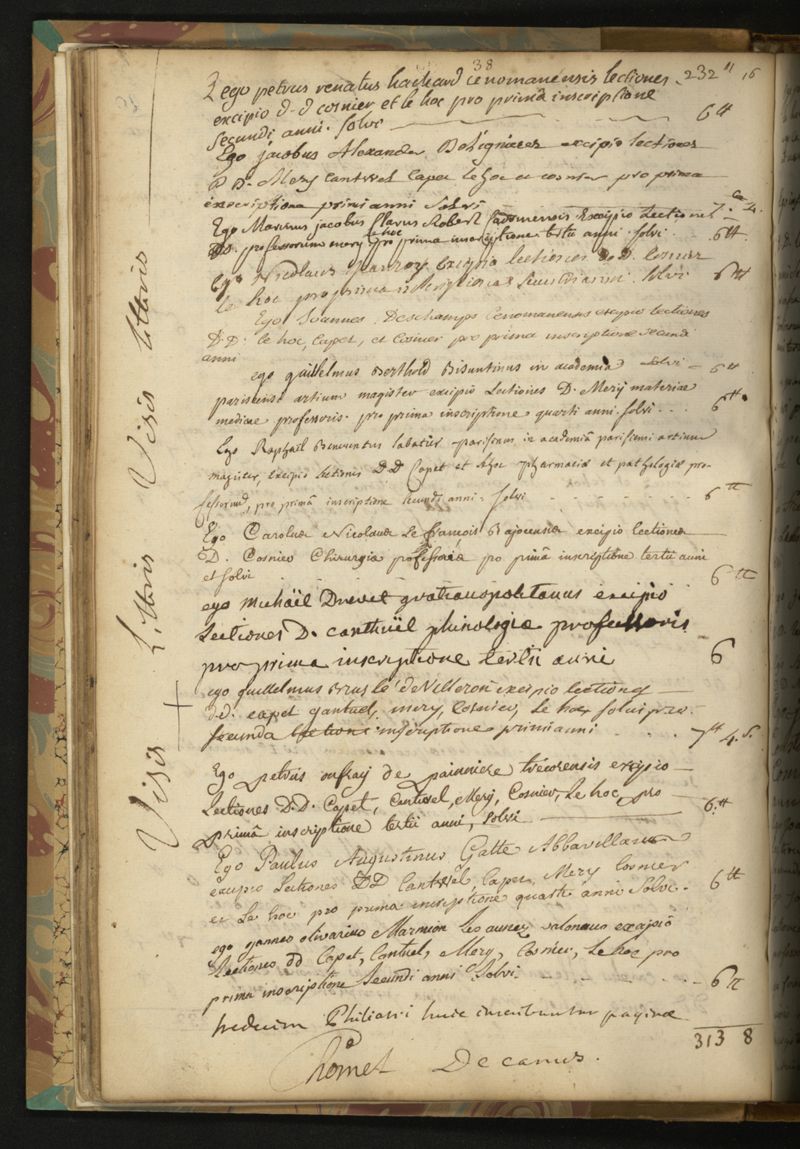 38
ego petrus renatus hachard cenomanensis lectiones 232 16
excipio d. d cosnier et le hoc pro primâ inscriptione
secundi anni. solvi 6tt
Ego jacobus Alexander excipio lectiones
D D. Mery Cantwel Capet Le hoc et cosnier pro prima
inscriptione primi anni solvi 7. 4.
Ego jacobus Clarus Robert Excipio Lectiones
DD. professorum mery le hoc pro prima inscriptione tertii anni solvi. 6tt
Ego Nicolaus excipio lectiones D. D. Cosnier
le hoc pro prima inscriptione secundi anni. solvi 6tt
Ego Joannes Deschamps Cenomanensis excipio lectiones
D. D. le hoc, Capet, et Cosnier pro prima inscriptione secundi
anni solvi 6tt
ego guillelmus Berthold Bisuntinus in academiâ
parisiensi artium magister excipio Lectiones D. Mery materiæ
medicæ professoris. pro prima inscriptione quarti anni. solvi 6tt
Ego Raphaël Bienventus Sabatier parisinus in academiâ parisiensi artium
magister, excipio lectiones DD Capet et le hoc pharmaciæ et pathologiæ pro-
fessorum, pro primâ inscriptione secundi anni. solvi 6tt
Ego Carolus Nicolaus Le françois Bajocensis excipio lectiones
D. Cosnier Chirurgiæ professoris pro primâ inscriptione tertii anni
et solvi 6tt
ego Michaël Drevet gratianopolitanus excipio
Lectiones D. canthuël phisiologiæ professoris
pro prima inscriptione tertii anni 6
ego guillelmus Bruslé de Villeron excipio lectiones
d.d. capet gantuel, mery, Cosnier, Le hoc solvi pro
secunda inscriptione primi anni 7tt 4. s.
Ego petrus onfray de trecorensis excipio
Lectiones D. D. Capet, Cantwel, Mery, Cosnier, Le hoc, pro
primâ inscriptione tertii anni, solvi 6tt
Ego Paulus Augustinus Gatte Abbavillaeus
excipio Lectiones DD Cantwel, Capet, Mery Cosnier
et Le hoc pro prima inscriptione quarti anni Solvi. 6tt
ego joannes olivarius Marmion excipio
Lectiones dd Capet, Cantuel, Mery, Cosnier, Le hoc pro
prima inscriptione secundi anni Solvi 6tt
tredecim Philiatri huic inscribuntur paginæ
313 8
Chomel Decanus.
Visis Litteris Visis litteris